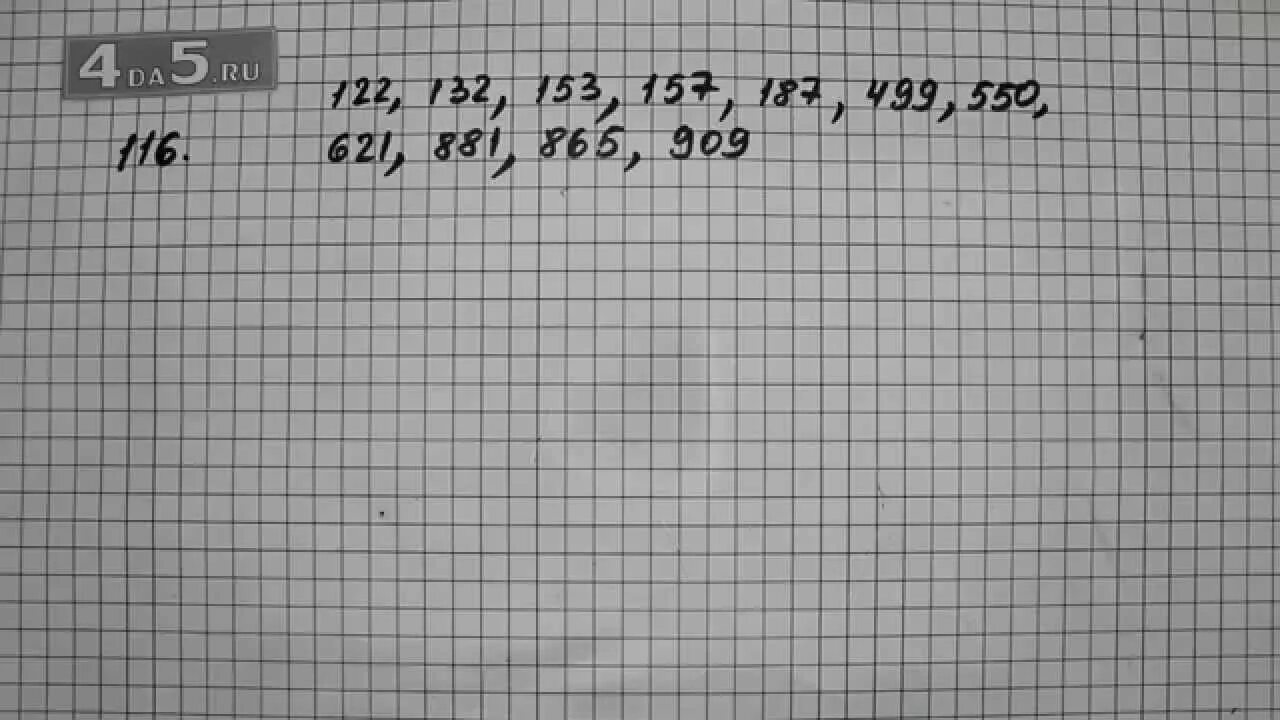 4DA5.RU
122, 132, 153, 157, 187, 499, 550,
116. 621, 881, 865, 909